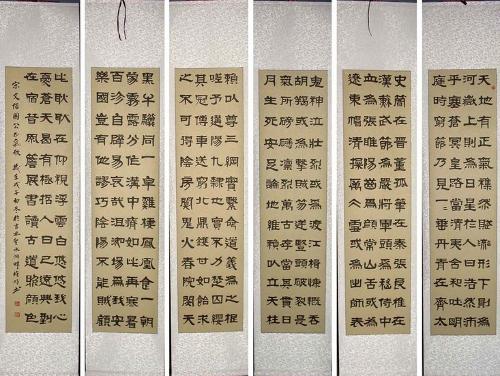 天地有正氣雜然賦流形下則為
河嶽上則為日星於人曰浩然沛
乎塞蒼冥皇路當清夷含和吐明
庭時窮節乃見一一垂丹青在齊太
史簡在晉董狐筆在秦張良椎在
漢蘇武節為嚴將軍頭為嵇侍中
血為張睢陽齒為顏常山舌或為
遼東帽清操厲冰雪或為出師表
鬼神泣壯烈或為渡江楫慷慨吞
胡羯或為擊賊笏逆豎頭破裂是
氣所磅礴凜烈萬古存當其貫日
月生死安足論地維賴以立天柱
賴以尊三綱實繫命道義為之根
嗟予遘陽九隸也實不力楚囚纓
其冠傳車送窮北鼎鑊甘如飴求
之不可得陰房闃鬼火春院閟天
黑牛驥同一皁雞棲鳳凰食一朝
蒙霧露分作溝中瘠如此再寒暑
百沴自辟易哀哉沮洳場為我安
樂國豈有他繆巧陰陽不能賊顧
此耿耿在仰視浮雲白悠悠我心
憂蒼天曷有極哲人日已遠典刑
在夙昔風簷展書讀古道照顏色
宋文信國公正氣歌 歲在戊子初冬於書